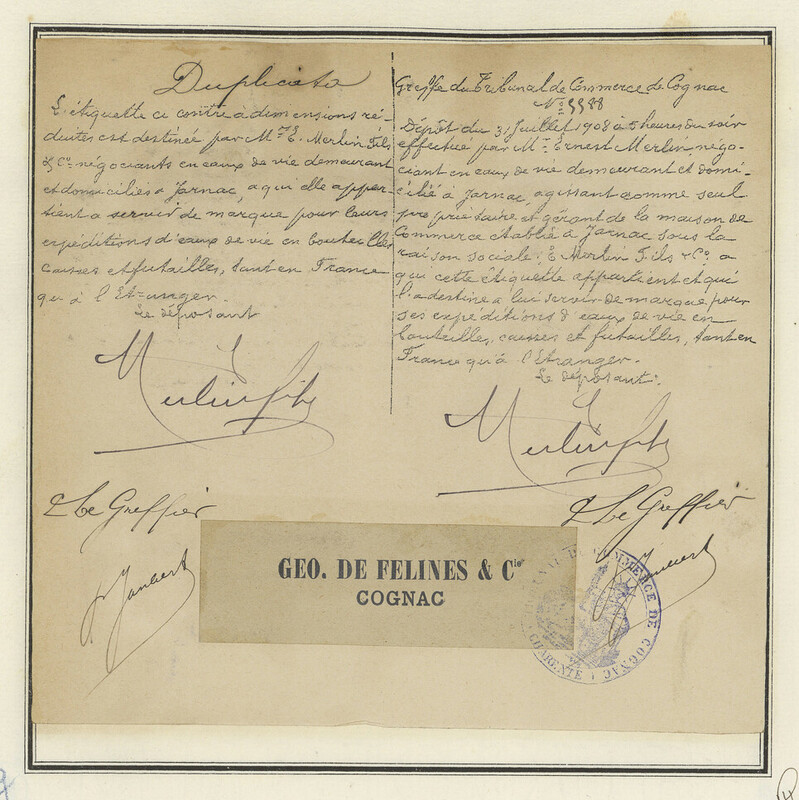 Duplicata
L'étiquette ci contre à dimensions ré-
duites est destinée par Mr E. Merlin Fils
& Co négociants en eaux de vie demeurant
et domiciliés à Jarnac, a qui elle appar-
tient a servir de marque pour leurs
expéditions d'eaux de vie en bouteilles
caisses et futailles, tant en France
qu'à l'Etranger.
Le déposant
Merlin fils
Le Greffier
Greffe du Tribunal de Commerce de Cognac
No 5588
Dépôt du 31 Juillet 1908 à 5 heures du soir
effectué par Mr Ernest Merlin, négo-
ciant en eaux de vie demeurant et domi-
cilié à Jarnac, agissant comme seul
propriétaire et gérant de la maison de
Commerce établie à Jarnac sous la
raison sociale: E. Merlin Fils & Co a
qui cette étiquette appartient et qui
l'a destine a lui servir de marque pour
ses expéditions d'eaux de vie en
bouteilles, caisses et futailles, tant en
France qu'à l'Etranger.
Le déposant:
Merlin fils
Le Greffier
GEO. DE FELINES & Cie
COGNAC
COMMERCE DE COGNAC
CHARENTE